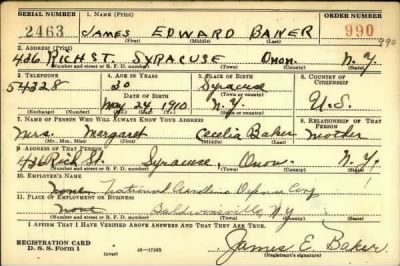 SERIAL NUMBER 1. NAME (Print) ORDER NUMBER
2463 JAMES EDWARD BAKER 990
(First) (Middle) (Last)
2. ADDRESS (Print) 990
436 RICH ST. SYRACUSE Onon. N.Y.
(Number and street or R. F. D. number) (Town) (County) (State)
3. TELEPHONE 4. AGE IN YEARS 5. PLACE OF BIRTH 6. COUNTRY OF CITIZENSHIP
54328 30 Syracuse
DATE OF BIRTH (Town or county)
May 24, 1910. N.Y. U.S.
(Exchange) (Number) (Mo.) (Day) (Yr.) (State or country)
7. NAME OF PERSON WHO WILL ALWAYS KNOW YOUR ADDRESS 8. RELATIONSHIP OF THAT PERSON
Mrs. Margaret Cecelia Baker mother
(Mr., Mrs., Miss) (First) (Middle) (Last)
9. ADDRESS OF THAT PERSON
436 Rich St. Syracuse, Onon. N.Y.
(Number and street or R. F. D. number) (Town) (County) (State)
10. EMPLOYER'S NAME
none National
11. PLACE OF EMPLOYMENT OR BUSINESS
none Baldwinsville, N.Y.
(Number and street or R. F. D. number) (Town) (County) (State)
I AFFIRM THAT I HAVE VERIFIED ABOVE ANSWERS AND THAT THEY ARE TRUE.
REGISTRATION CARD
D. S. S. Form 1 (over) 16—17105 James E. Baker
(Registrant's signature)